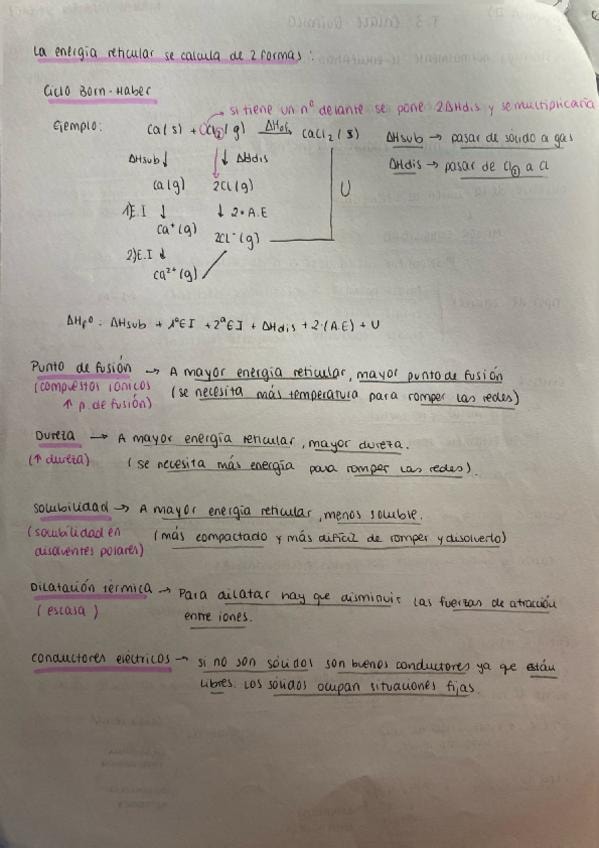 La energía reticular se calcula de 2 formas:
Ciclo Born-Haber
→ si tiene un nº delante se pone 2ΔHdis y se multiplicaría
Ejemplo: Ca(s) + Cl₂(g) ΔHºf→ CaCl₂(s)
ΔHsub → pasar de sólido a gas
ΔHsub↓ ↓ΔHdis
ΔHdis → pasar de Cl₂ a Cl
Ca(g) 2Cl(g) U
1)E.I ↓ ↓ 2·A.E
Ca⁺(g) 2Cl⁻(g)
2)E.I ↓
Ca²⁺(g)
ΔHfº = ΔHsub + 1ºEI + 2ªEI + ΔHdis + 2·(A.E) + U
Punto de fusión → A mayor energía reticular, mayor punto de fusión
(compuestos iónicos (se necesita más temperatura para romper las redes)
↑ p. de fusión)
Dureza → A mayor energía reticular, mayor dureza.
(↑ dureza) (se necesita más energía para romper las redes).
Solubilidad → A mayor energía reticular, menos soluble.
(solubilidad en (más compactado y más difícil de romper y disolverlo)
disolventes polares)
Dilatación térmica → Para dilatar hay que disminuir las fuerzas de atracción
(escasa) entre iones.
Conductores eléctricos → si no son sólidos son buenos conductores ya que están
libres. Los sólidos ocupan situaciones fijas.